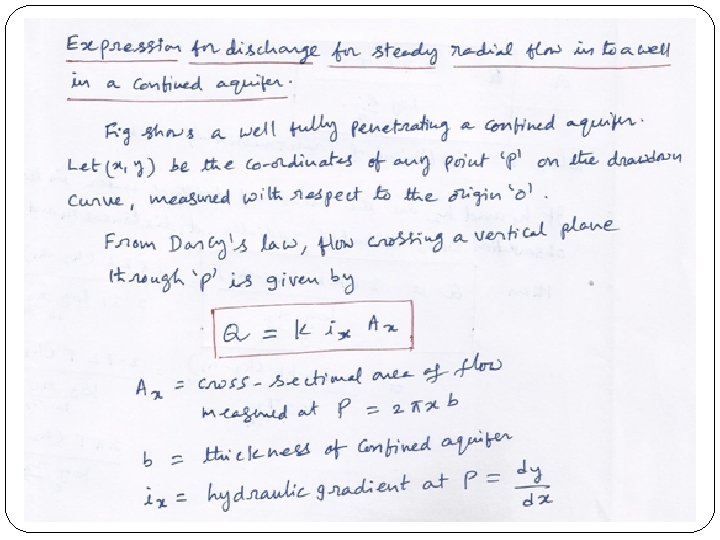 Expression for discharge for steady radial flow in to a well
in a confined aquifer.
Fig shows a well fully penetrating a confined aquifer.
Let (x, y) be the co-ordinates of any point 'P' on the drawdown
curve, measured with respect to the origin 'o'.
From Darcy's law, flow crossing a vertical plane
through 'P' is given by
Q = k ix Ax
Ax = cross-sectional area of flow
measured at P = 2πxb
b = thickness of confined aquifer
ix = hydraulic gradient at P = dy/dx